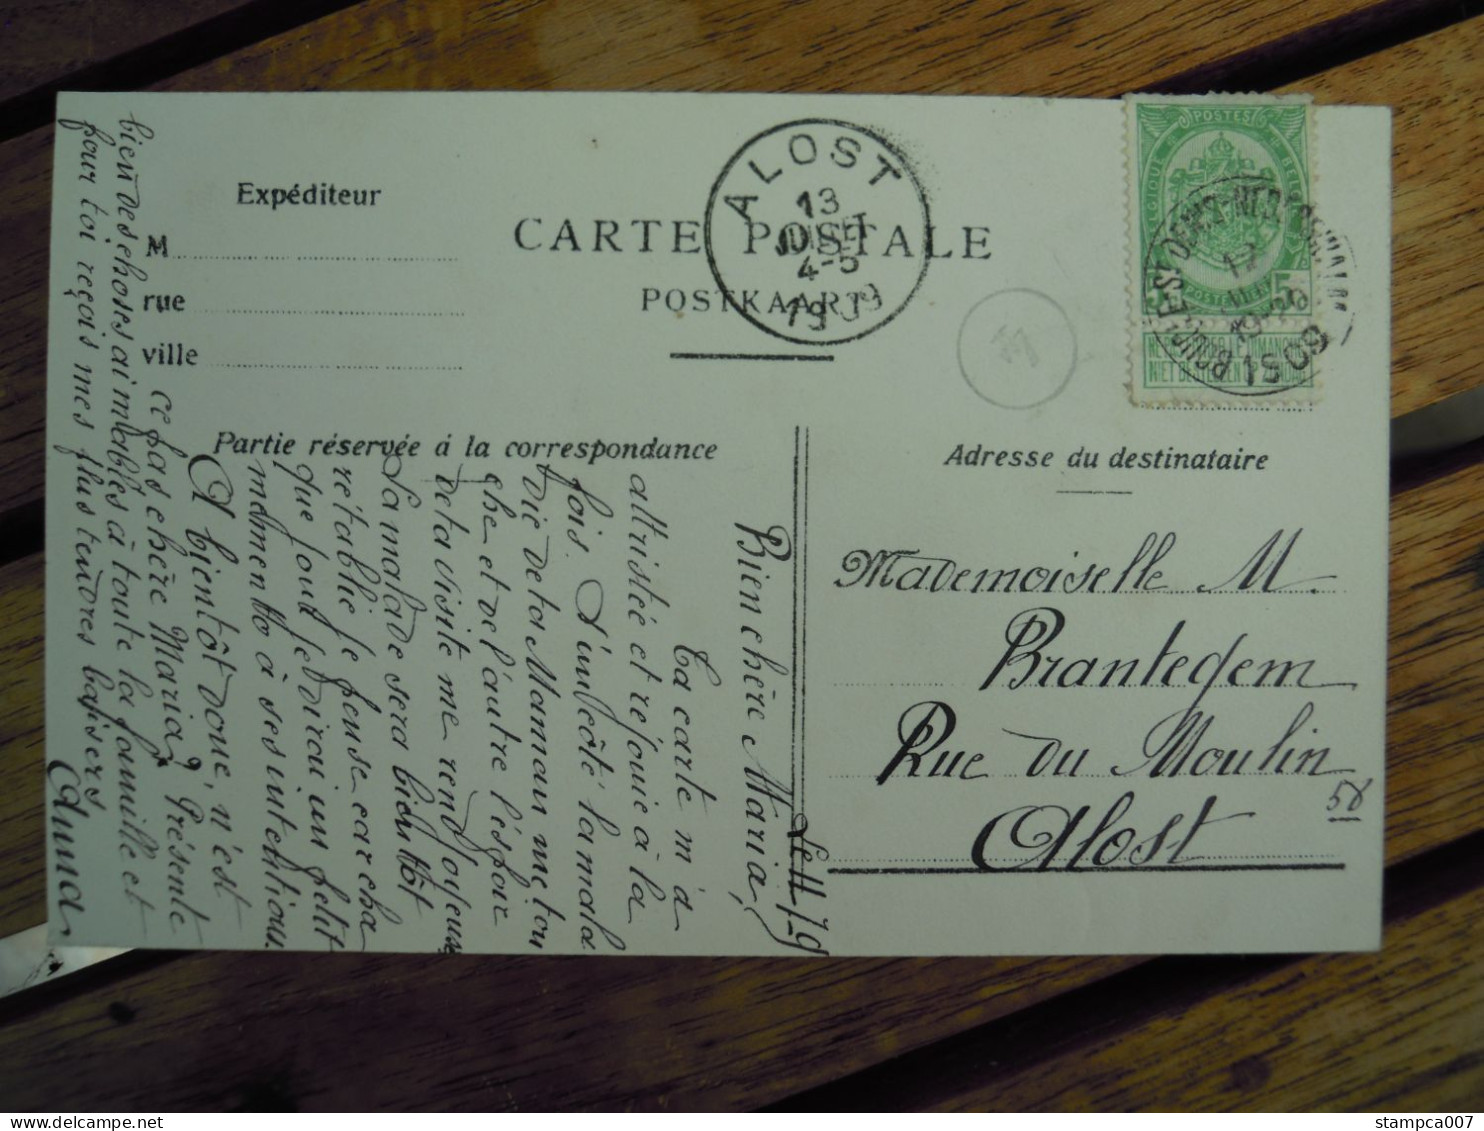 Expéditeur
M
rue
ville
CARTE POSTALE
POSTKAART
ALOST
13
JUILLET
4-5
1909
POSTES
BELGIQUE
POSTERIJEN
5
NE PAS LIVRER LE DIMANCHE
NIET BESTELLEN OP ZONDAG
12
19-20
1909
Partie réservée á la correspondance
Adresse du destinataire
Mademoiselle M.
Brantegem
Rue du Moulin
58
Alost
Le 11/7 9
Bien chère Maria,
Ta carte m'a
attristée et réjouie à la
fois. D'un côté la mala
die de ta Maman me tou
che et de l'autre l'éspoir
de ta visite me rend joyeuse
La malade sera bientôt
rétablie je pense car cha
que jour je dirai un petit
mémento à ses intentions.
A bientôt donc, n'est
ce pas chère Maria? Présente
bien de choses aimables à toute la famille et
pour toi reçois mes plus tendres baisers
Anna
stampca007